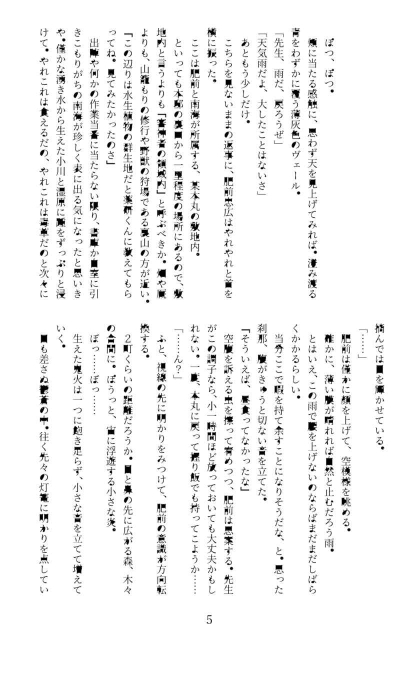 ぽつ、ぽつ。
頬に当たる感触に、思わず天を見上げてみれば。澄み渡る
青をわずかに覆う薄灰色のヴェール。
「先生、雨だ、戻ろうぜ」
「天気雨だよ、大したことはないさ」
あともう少しだけ。
こちらを見ないままの返事に、肥前忠広はやれやれと首を
横に振った。
ここは肥前と南海が所属する、某本丸の敷地内。
といっても本邸の裏門から一里程度の場所にあるので、敷
地内と言うよりも『審神者の領域内』と呼ぶべきか。畑や厩
よりも、山籠もりの修行や野獣の狩場である裏山の方が近い。
「この辺りは水生植物の群生地だと薬研くんに教えてもら
ってね。見てみたかったのさ」
出陣や何かの作業当番に当たらない限り、書庫か自室に引
きこもりがちの南海が珍しく表に出る気になったと思いき
や。僅かな湧き水から生えた小川と湿原に踝をずっぷりと浸
けて。やれこれは食えるだの、やれこれは毒草だのと次々に
摘んでは目を輝かせている。
「……」
肥前は僅かに顔を上げて、空模様を眺める。
確かに、薄い雲が晴れれば自然と止むだろう雨。
とはいえ、この雨で腰を上げないのならばまだまだしばら
くかかるらしい。
当分ここで暇を持て余すことになりそうだな、と。思った
刹那、腹がきゅうと切ない音を立てた。
「そういえば、昼食ってなかったな」
空腹を訴える虫を擦って宥めつつ、肥前は思案する。先生
がこの調子なら、小一時間ほど放っておいても大丈夫かもし
れない。一度、本丸に戻って握り飯でも持ってこようか……
「……ん？」
ふと、視線の先に明かりをみつけて、肥前の意識が方向転
換する。
２町くらいの距離だろうか。目と鼻の先に広がる森、木々
の合間に。ぼうっと、宙に浮遊する小さな炎。
ぽっ……ぽっ……
生えた鬼火は一つに飽き足らず、小さな音を立てて増えて
いく。
日も差さぬ鬱蒼の中。往く先々の灯籠に明かりを点してい
5